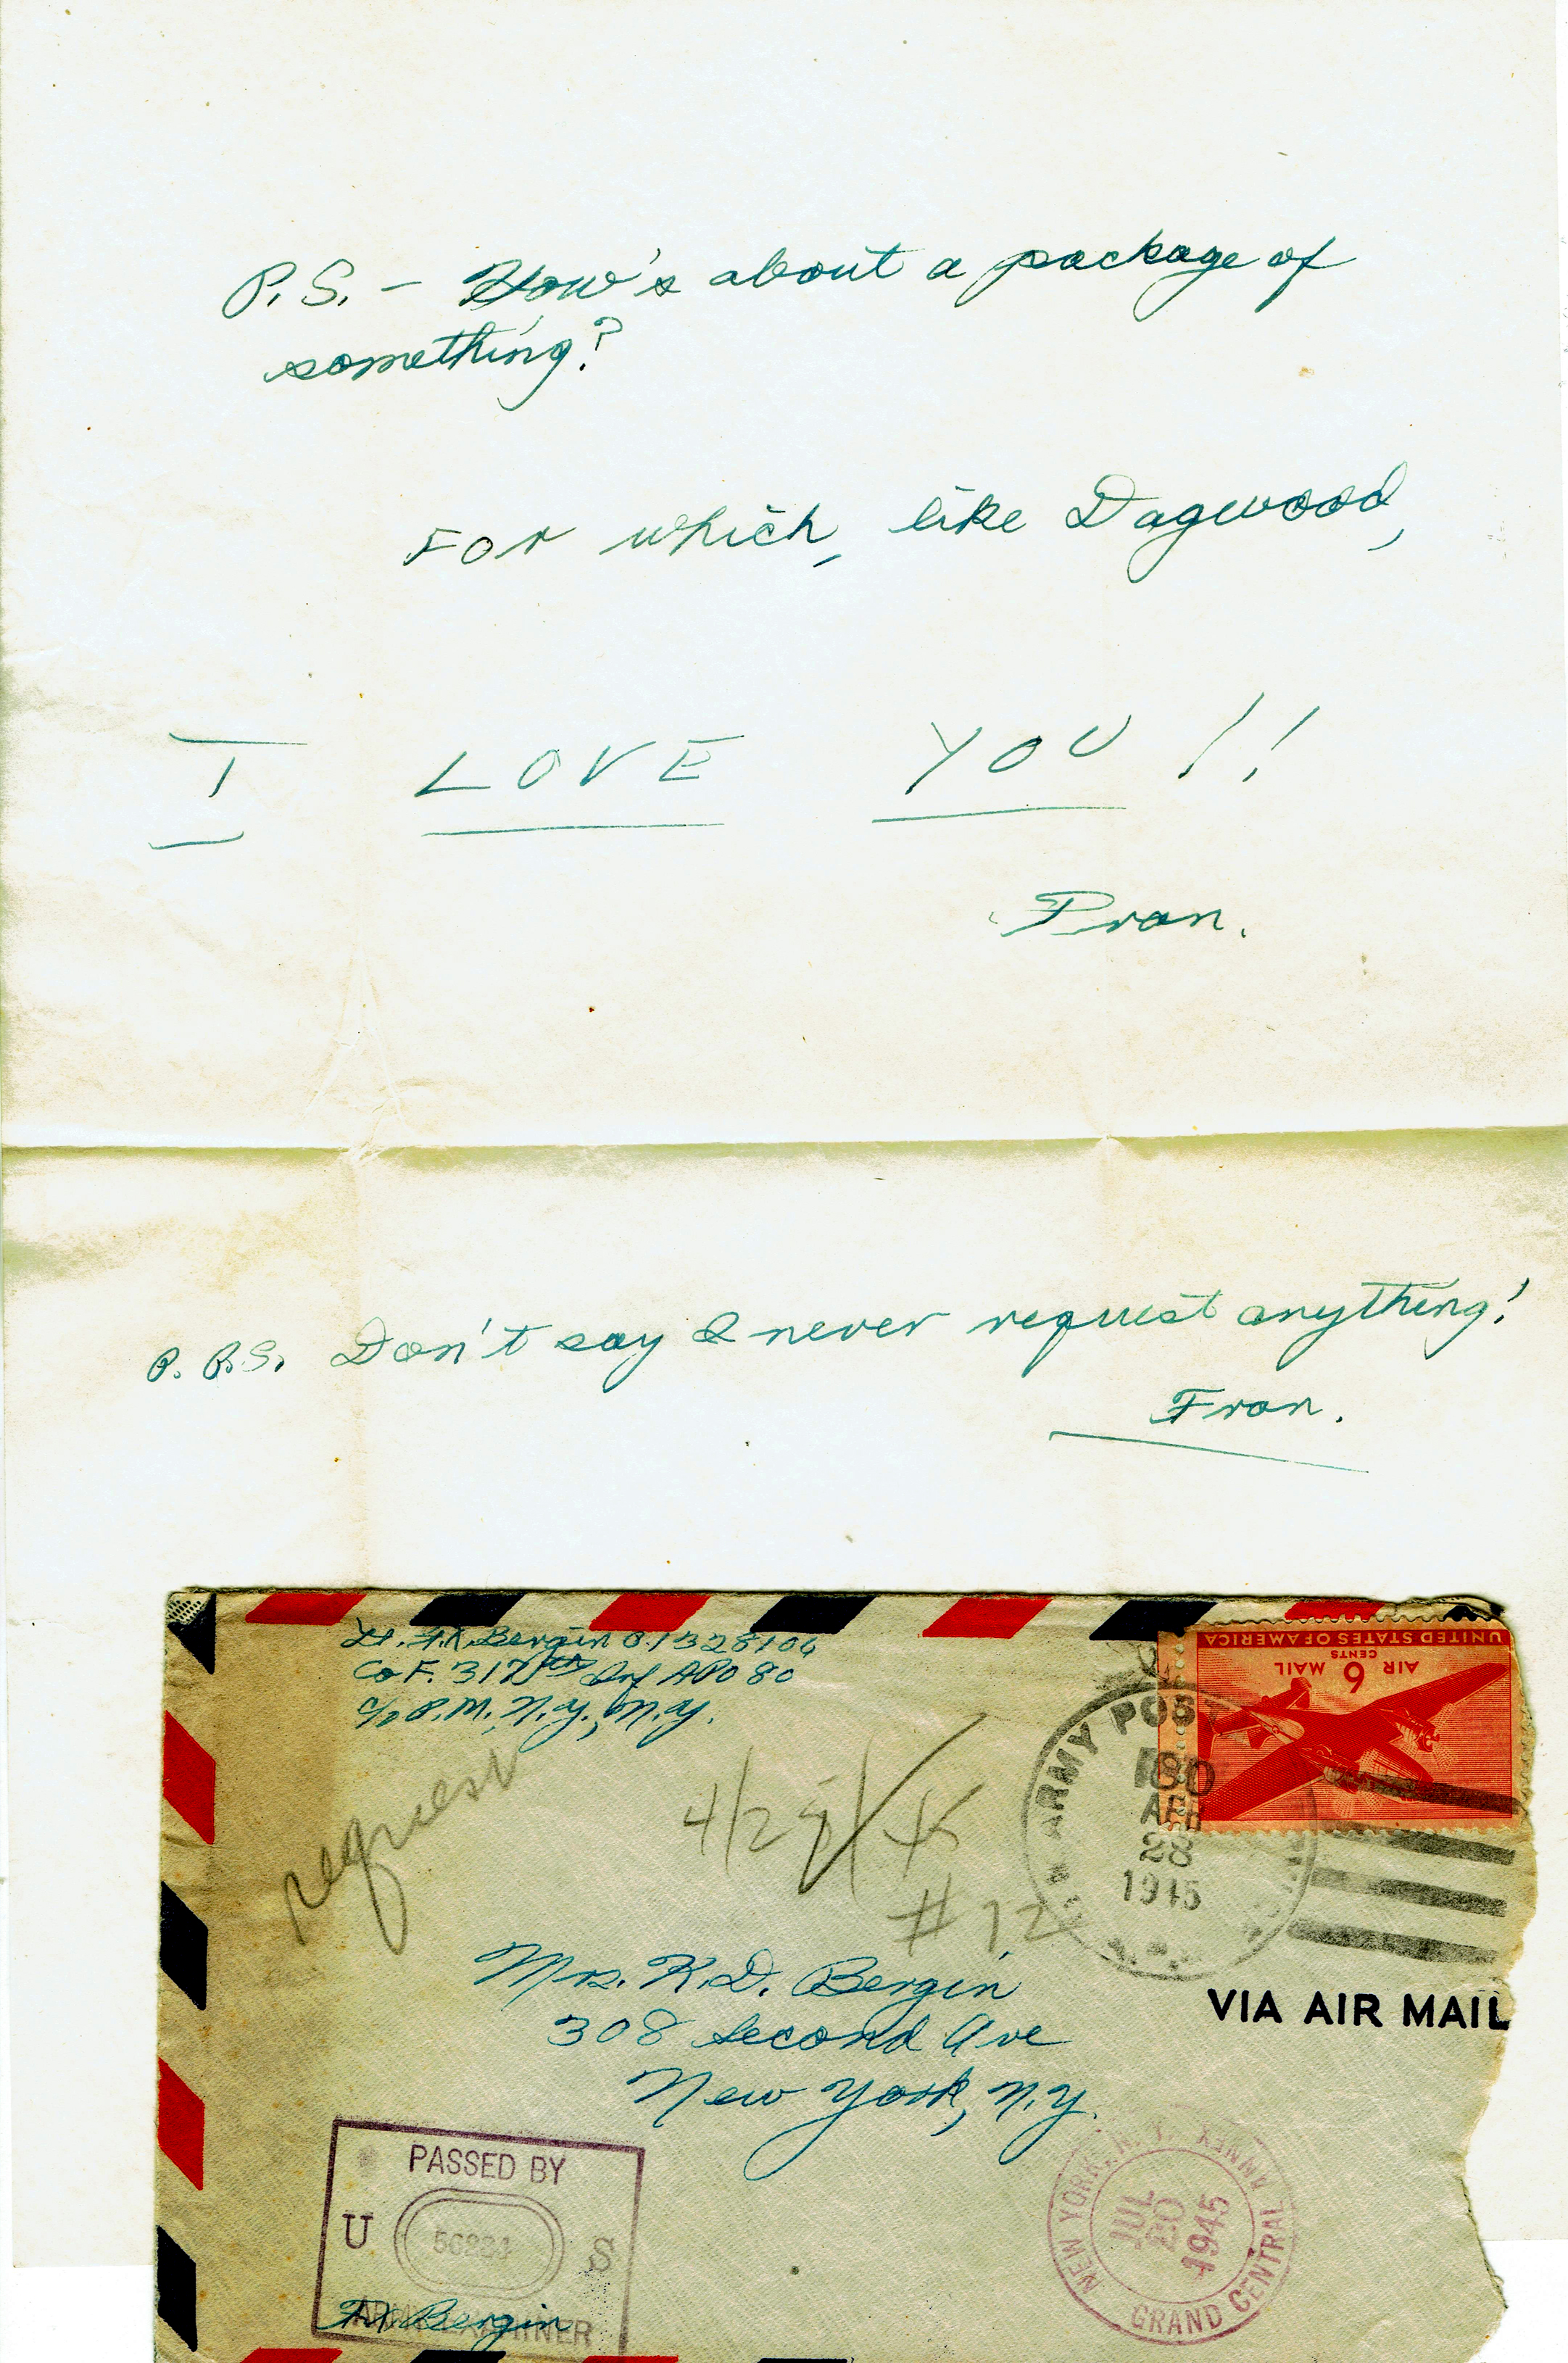 P.S. - How's about a package of
something?
For which, like Dagwood,
I LOVE YOU!!
Fran.
P.P.S. Don't say I never request anything!
Fran.
Lt. F.X. Bergin O.1328106
Co F. 317th Inf APO 80
c/o P.M. N.Y., N.Y.
request
4/28/45
#12
UNITED STATES OF AMERICA
AIR 6 MAIL
CENTS
ARMY POST
APR
28
1945
VIA AIR MAIL
Mrs. K.D. Bergin
308 Second Ave
New York, N.Y.
PASSED BY
U S
ARMY EXAMINER
FX Bergin
NEW YORK, N.Y. ANNEX
JUL
1945
GRAND CENTRAL